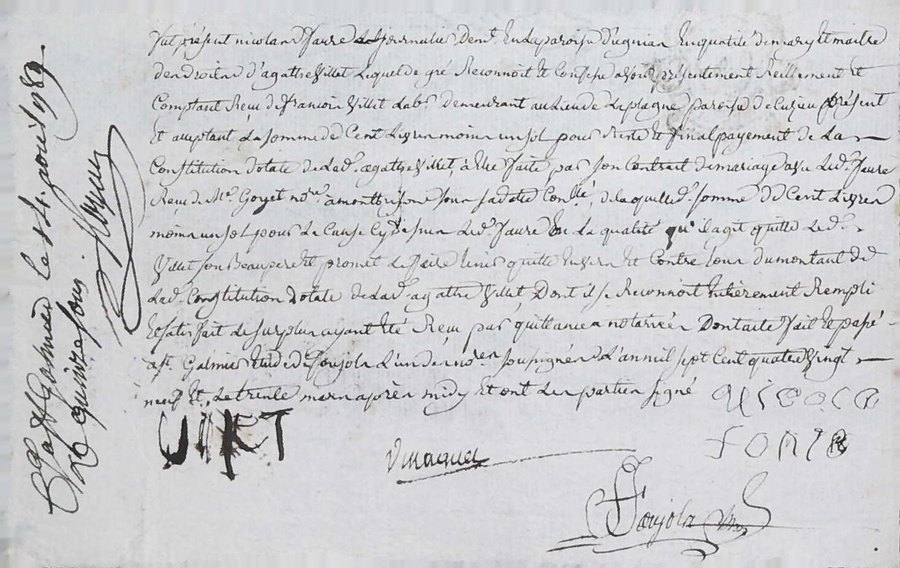 fut présent nicolas faure journalier demt en la paroisse d'aguian en qualité de mary et maitre
des droits d'agatte Villet lequel de gré Reconnoit et Confesse avoir présentement réellement et
Comptant Reçu de françois Villet labr demeurant au lieu de la plagne paroisse de Cuzieu présent
et acceptant la somme de Cent Livres moins un sol pour reste et final payement de la
Constitution dotale de lad. agathe Villet, à elle faite par son Contrat de mariage avec led. faure
Reçu de Me. Goyet nore. a montbrison sous sa datte Conllé, de laquelle d. somme de Cent Livres
moins un sol pour la Cause cy dessus led. faure en la qualité qu'il agit quitte led.
Villet son Beaupere et promet le faire tenir quitte envers et Contre tous du montant de
lad. Constitution dotale de lad. agathe Villet Dont il se Reconnoit entièrement Rempli
et satisfait le surplus ayant été Reçu par quittances notariées Dont acte fait et passé
a St. Galmier étude de Poujola l'un des nores. soussignés l'an mil sept Cent quatre Vingt
neuf et le trente mars après midy et ont les parties signé
nicola
fonre
Vilet
Poujola
St Galmier le 14. avril 1789.
Rc quinze sous.